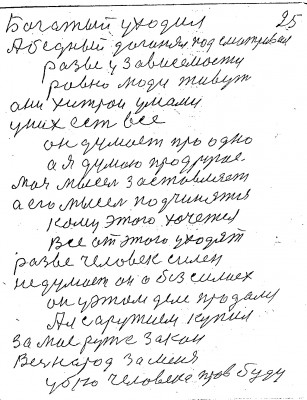 Богатый уходил 25
Абедный догонял подсматривал
разве у зависемости
равно люди живут
они хитрой умами
уних ест все
он думает про одно
а я думаю продругае
моя мысел заставляет
а его мысел подчинятся
кому этого хочется
Все от этого уходят
разве человек силен
недумает он о безсилиех
он уэтом деле продали
Ая саружием купил
замае руже закон
Весь народ заменя
убю человека прав буду